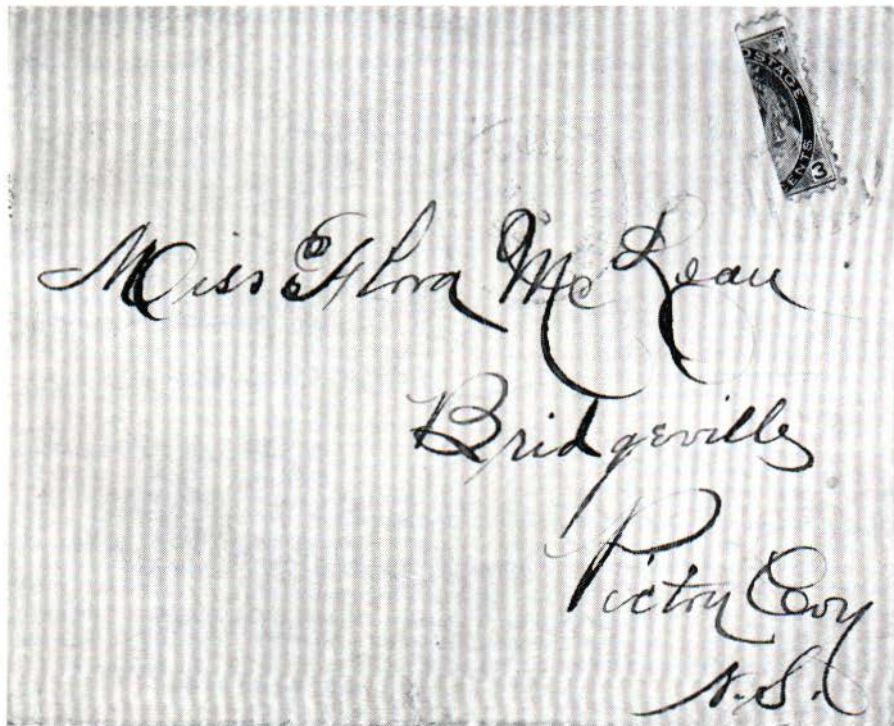 POSTAGE
CENTS
3
Miss Flora McLean
Bridgeville
Pictou Coy
N.S.